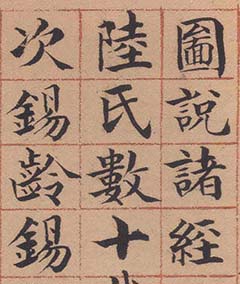 圖說諸經
陸氏數十
次錫齡錫